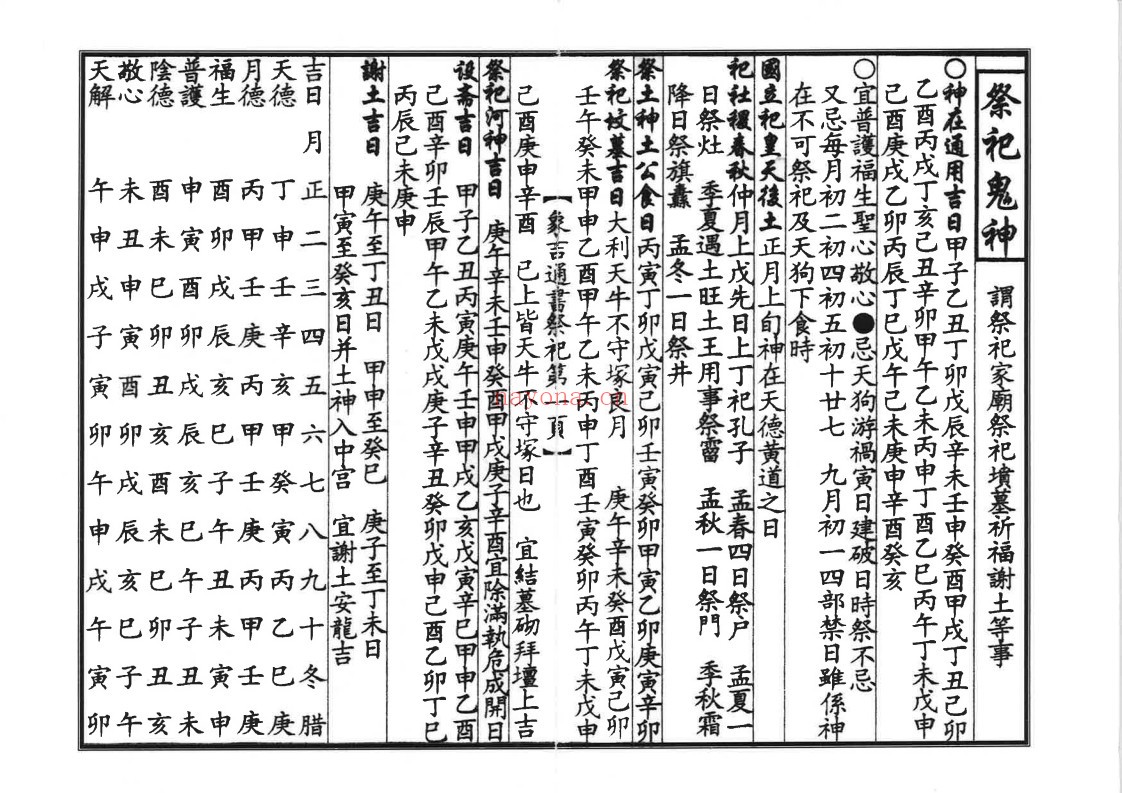 祭祀鬼神　謂祭祀家廟祭祀墳墓祈福謝土等事
○神在通用吉日甲子乙丑丁卯戊辰辛未壬申癸酉甲戌丁丑己卯
乙酉丙戌丁亥己丑辛卯甲午乙未丙申丁酉乙巳丙午丁未戊申
己酉庚戌乙卯丙辰丁巳戊午己未庚申辛酉癸亥
○宜普護福生聖心敬心●忌天狗游禍寅日建破日時祭不忌
又忌每月初二初四初五初十廿七　九月初一四部禁日雖係神
在不可祭祀及天狗下食時
國立祀皇天後土正月上旬神在天德黃道之日
祀社稷春秋仲月上戊先日上丁祀孔子　孟春四日祭户　孟夏一
日祭灶　季夏遇土旺土王用事祭霤　孟秋一日祭門　季秋霜
降日祭旗纛　孟冬一日祭井
祭土神土公食日丙寅丁卯戊寅己卯壬寅癸卯甲寅乙卯庚寅辛卯
祭祀坟墓吉日大利天牛不守塚良月　庚午辛未癸酉戊寅己卯
壬午癸未甲申乙酉甲午乙未丙申丁酉壬寅癸卯丙午丁未戊申
【象吉通書祭祀第一頁】
己酉庚申辛酉　已上皆天牛不守塚日也　宜結墓砌拜壇上吉
祭祀河神吉日　庚午辛未壬申癸酉甲戌庚子辛酉宜除滿執危成開日
设斋吉日　甲子乙丑丙寅庚午壬申甲戌乙亥戊寅辛巳甲申乙酉
己酉辛卯壬辰甲午乙未戊戌庚子辛丑癸卯戊申己酉乙卯丁巳
丙辰己未庚申
謝土吉日　庚午至丁丑日　甲申至癸巳　庚子至丁未日
甲寅至癸亥日并土神入中宫　宜謝土安龍吉
吉日　月　正二三四五六七八九十冬腊
天德　丁申壬辛亥甲癸寅丙乙巳庚
月德　丙甲壬庚丙甲壬庚丙甲壬庚
福生　酉卯戌辰亥巳子午丑未寅申
普護　申寅酉卯戌辰亥巳午子丑未
陰德　酉未巳卯丑亥酉未巳卯丑亥
敬心　未丑申寅酉卯戌辰亥巳子午
天解　午申戌子寅卯午申戌午寅卯
nayona.cn